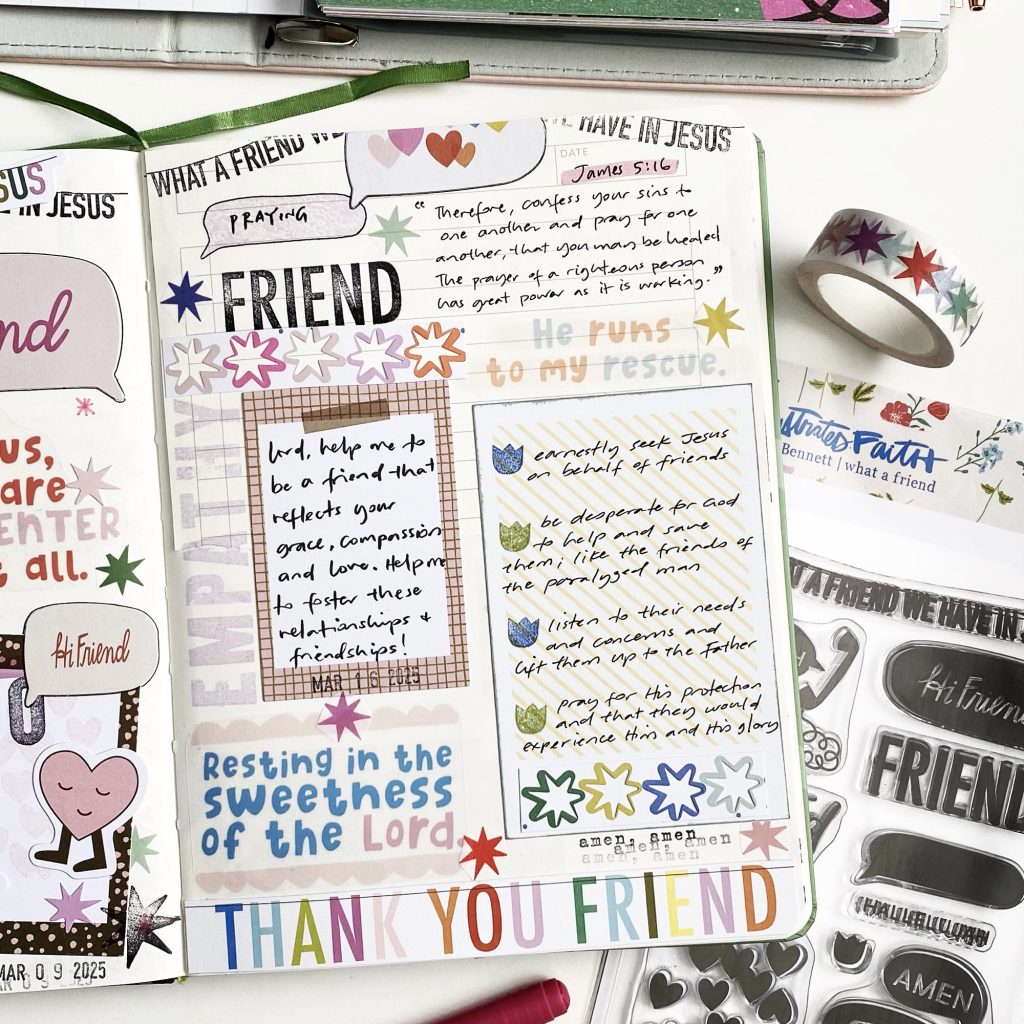 SUS
IN JESUS
nd
us,
are
ENTER
all.
Hi Friend
MAR 09 2025
WHAT A FRIEND WE
HAVE IN JESUS
DATE
James 5:16
PRAYING
FRIEND
"Therefore, confess your sins to
one another and pray for one
another, that you may be healed
The prayer of a righteous person
has great power as it is working."
He runs
to my rescue.
EMPATHY
Lord, help me to
be a friend that
reflects your
grace, compassion
and love. Help me
to foster these
relationships &
friendships!
MAR 16 2025
earnestly seek Jesus
on behalf of friends
be desperate for God
to help and save
them; like the friends of
the paralyzed man
listen to their needs
and concerns and
lift them up to the Father
pray for His protection
and that they would
experience Him and His glory
Resting in the
sweetness
of the Lord.
amen, amen
amen, amen
amen, amen
THANK YOU FRIEND
strated Faith
Bennett | what a friend
A FRIEND WE HAVE IN
Hi Friend
FRIEND
HALLELUJAH
AMEN